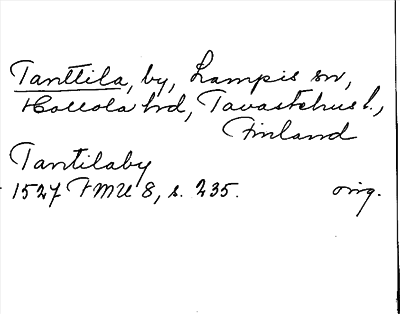 Tanttila, by, Lampis sn,
Hollola hd, Tavastehus l.,
Finland
Tantilaby
1527 FMU 8, s. 235. orig.